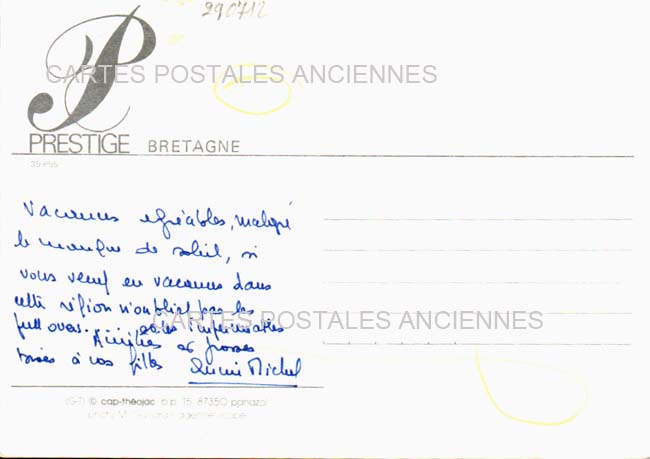 290712
CARTES POSTALES ANCIENNES
PRESTIGE BRETAGNE
Vacances agréables, malgré
le manque de soleil, si
vous venez en vacances dans
cette région n'oubliez pas les
pull overs... et les imperméables
Amitiés et grosses
bises à vos filles Michel
CARTES POSTALES ANCIENNES
© cap-théojac b.p. 15 87350 panazol